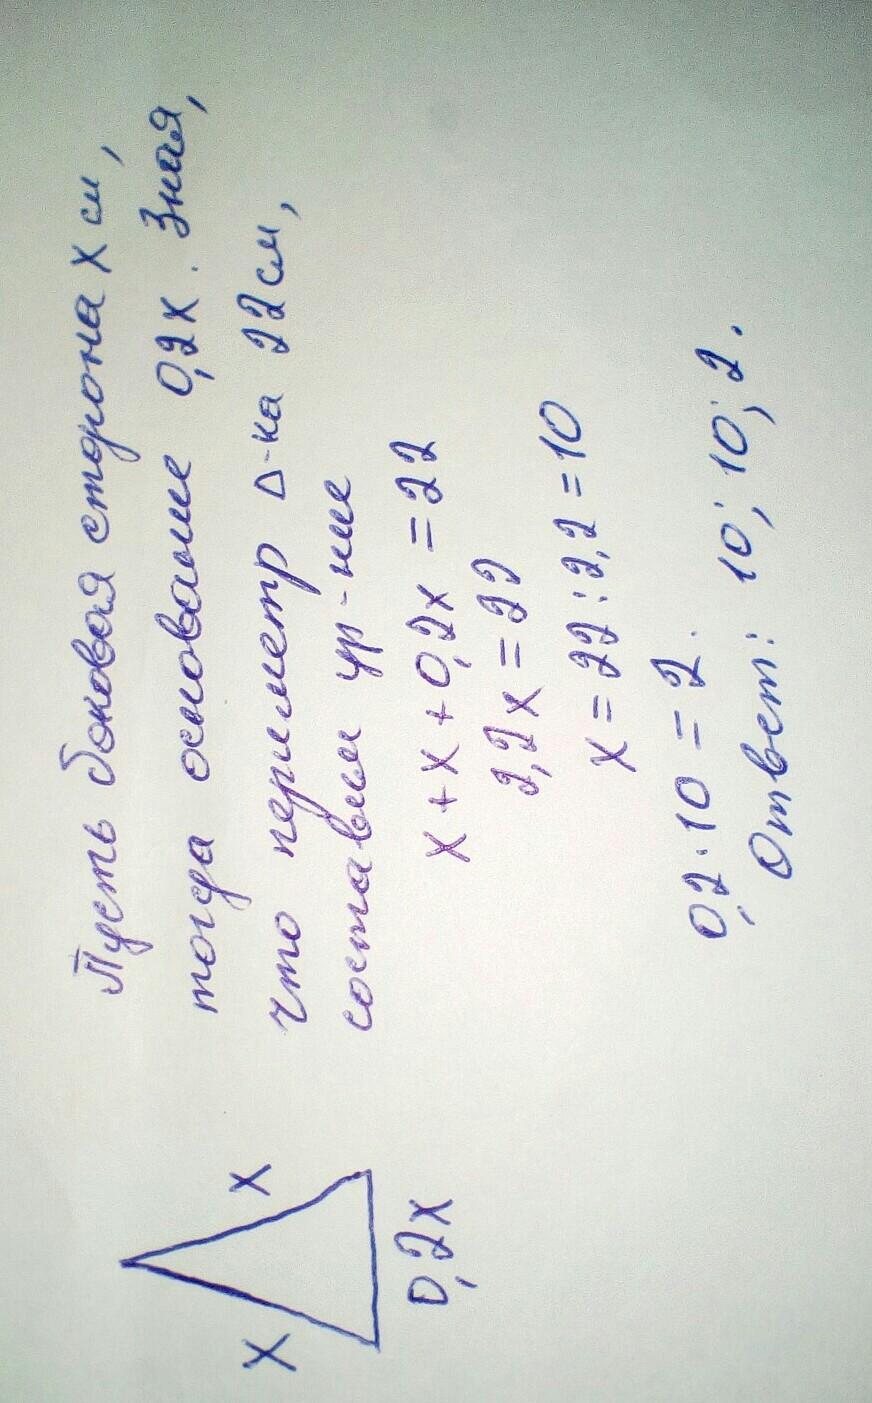 Пусть боковая сторона x см,
тогда основание 0,2x. Зная,
что периметр Δ-ка 22 см,
составим ур-ние
x + x + 0,2x = 22
2,2x = 22
x = 22 : 2,2 = 10
0,2 · 10 = 2.
Ответ: 10; 10; 2.
x x
0,2x